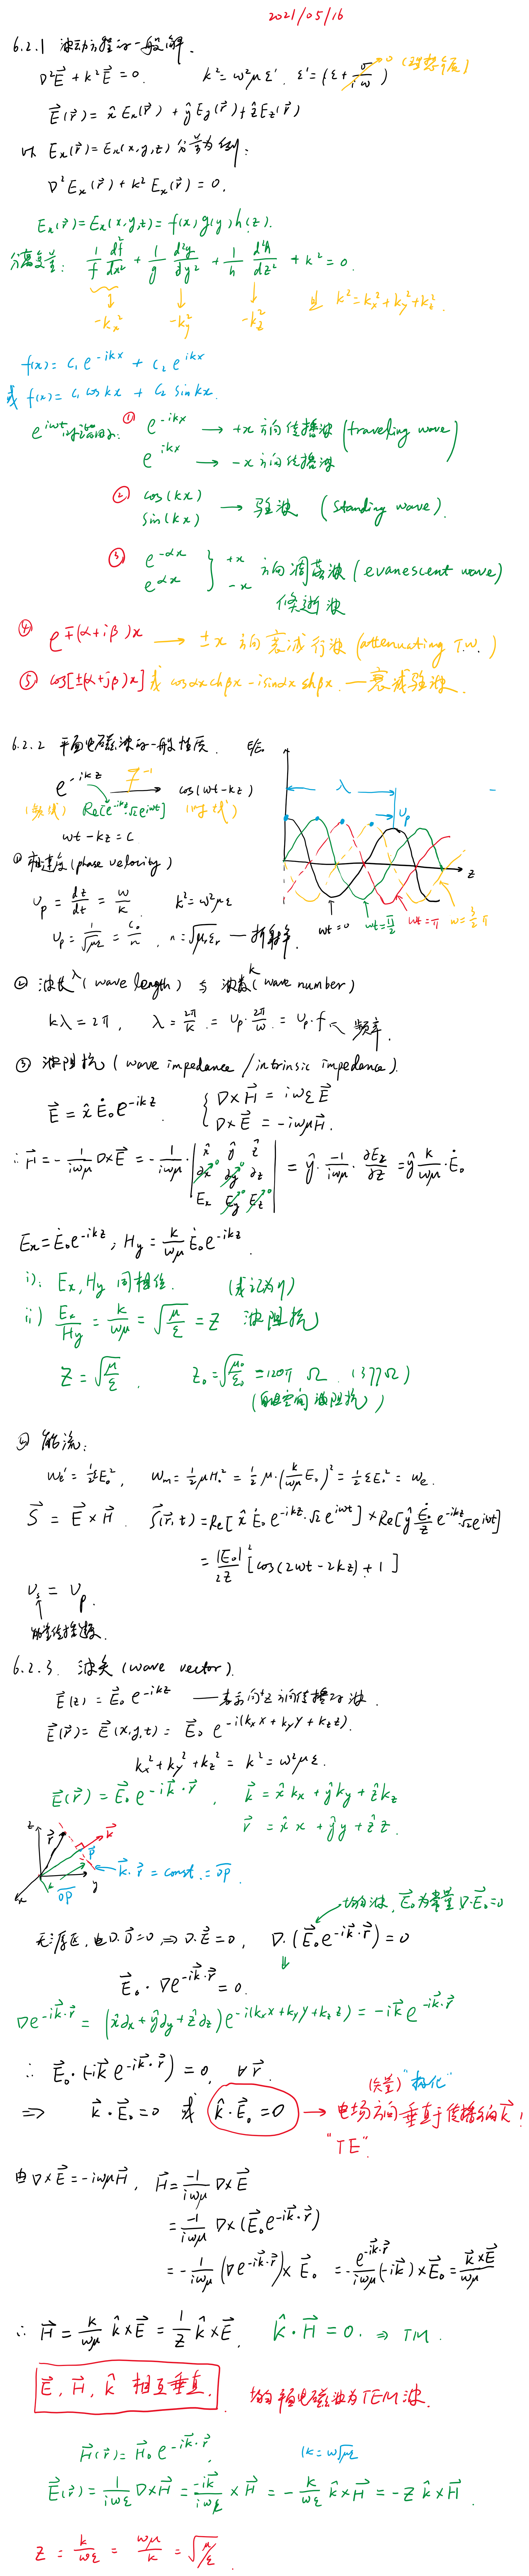 2021/05/16
6.2.1 波动方程的一般解.
∇²E⃗ + k²E⃗ = 0. k² = ω²με'. ε' = (ε + σ/iω) →0 (理想介质)
E⃗(r⃗) = x̂ Ex(r⃗) + ŷ Ey(r⃗) + ẑ Ez(r⃗)
以 Ex(r⃗) = Ex(x,y,z) 分量为例:
∇²Ex(r⃗) + k²Ex(r⃗) = 0.
Ex(r⃗) = Ex(x,y,z) = f(x) g(y) h(z).
分离变量: 1/f d²f/dx² + 1/g d²g/dy² + 1/h d²h/dz² + k² = 0.
-kx² -ky² -kz² 且 k² = kx² + ky² + kz².
f(x) = c₁ e^{-ikx} + c₂ e^{ikx}
或 f(x) = c₁ cos kx + c₂ sin kx.
e^{iωt} 时谐因子: ① e^{-ikx} → +x 方向传播波 (traveling wave)
e^{ikx} → -x 方向传播波
② cos(kx) sin(kx) → 驻波 (standing wave).
③ e^{-αx} e^{αx} } +x -x 方向凋落波 (evanescent wave)
倏逝波
④ e^{∓(α+iβ)x} → ±x 方向衰减行波 (attenuating T.W.)
⑤ cos[±(α+jβ)x] 或 cosαx chβx - i sinαx shβx. — 衰减驻波.
6.2.2 平面电磁波的一般性质. E/E₀
e^{-ikz} F⁻¹ → cos(ωt-kz)
(频域) Re[e^{-ikz}·√2e^{iωt}] (时域)
ωt - kz = C
λ Up z
ωt=0 ωt=π/2 ωt=π ω=3/2 π
① 相速度 (phase velocity)
Up = dz/dt = ω/k k² = ω²με
Up = 1/√με = C₀/n, n = √μrεr — 折射率.
② 波长λ (wave length) 与 波数k (wave number)
kλ = 2π, λ = 2π/k = Up·2π/ω = Up·f ↖ 频率.
③ 波阻抗 (wave impedance / intrinsic impedance).
E⃗ = x̂ Ė₀ e^{-ikz} { ∇×H⃗ = iωεE⃗
∇×E⃗ = -iωμH⃗.
∴ H⃗ = -1/iωμ ∇×E⃗ = -1/iωμ · | x̂ ŷ ẑ ∂x→0 ∂y→0 ∂z Ex Ey→0 Ez→0 | = ŷ · -1/iωμ · ∂Ex/∂z = ŷ k/ωμ · Ė₀
Ex = Ė₀e^{-ikz}, Hy = k/ωμ Ė₀ e^{-ikz}.
i). Ex, Hy 同相位. (或记为η)
ii) Ex/Hy = k/ωμ = √(μ/ε) = Z 波阻抗
Z = √(μ/ε). Z₀ = √(μ₀/ε₀) = 120π Ω (377Ω)
(自由空间波阻抗)
④ 能流:
we' = ½εE₀², wm = ½μH₀² = ½μ·(k/ωμ E₀)² = ½εE₀² = we.
S⃗ = E⃗ × H⃗. S⃗(r⃗,t) = Re[x̂ Ė₀ e^{-ikz}·√2 e^{iωt}] × Re[ŷ Ė₀/Z e^{-ikz}·√2e^{iωt}]
= |E₀|²/2Z [cos(2ωt-2kz) + 1]
Us = Up.
能量传播速度.
6.2.3. 波矢 (wave vector).
E⃗(z) = E⃗₀ e^{-ikz} — 表示向+z方向传播的波.
E⃗(r⃗) = E⃗(x,y,z) = E⃗₀ e^{-i(kx x + ky y + kz z)}.
kx² + ky² + kz² = k² = ω²με.
E⃗(r⃗) = E⃗₀ e^{-ik⃗·r⃗}, k⃗ = x̂ kx + ŷ ky + ẑ kz
r⃗ = x̂ x + ŷ y + ẑ z.
z r⃗ k⃗ P y x OP k⃗·r⃗ = const. = OP
均匀波, E⃗₀为常量 ∇·E⃗₀=0
无源区, 由∇·D⃗=0 ⇒ ∇·E⃗=0, ∇·(E⃗₀e^{-ik⃗·r⃗}) = 0
E⃗₀ · ∇e^{-ik⃗·r⃗} = 0.
∇e^{-ik⃗·r⃗} = (x̂∂x + ŷ∂y + ẑ∂z) e^{-i(kx x + ky y + kz z)} = -ik⃗ e^{-ik⃗·r⃗}
∴ E⃗₀·(-ik⃗ e^{-ik⃗·r⃗}) = 0, ∀r⃗.
(矢量) "极化"
⇒ k⃗·E⃗₀=0 或 k̂·E⃗₀=0 → 电场方向垂直于传播方向k⃗!
"TE".
由∇×E⃗ = -iωμH⃗, H⃗ = -1/iωμ ∇×E⃗
= -1/iωμ ∇×(E⃗₀e^{-ik⃗·r⃗})
= -1/iωμ (∇e^{-ik⃗·r⃗})×E⃗₀ = -e^{-ik⃗·r⃗}/iωμ (-ik⃗)×E⃗₀ = k⃗×E⃗/ωμ
∴ H⃗ = k/ωμ k̂×E⃗ = 1/Z k̂×E⃗, k̂·H⃗ = 0. ⇒ TM.
E⃗, H⃗, k̂ 相互垂直. 均匀平面电磁波为TEM波.
H⃗(r⃗) = H⃗₀ e^{-ik⃗·r⃗}, k = ω√με
E⃗(r⃗) = 1/iωε ∇×H⃗ = -ik⃗/iωε × H⃗ = -k/ωε k̂×H⃗ = -Z k̂×H⃗.
Z = k/ωε = ωμ/k = √(μ/ε).